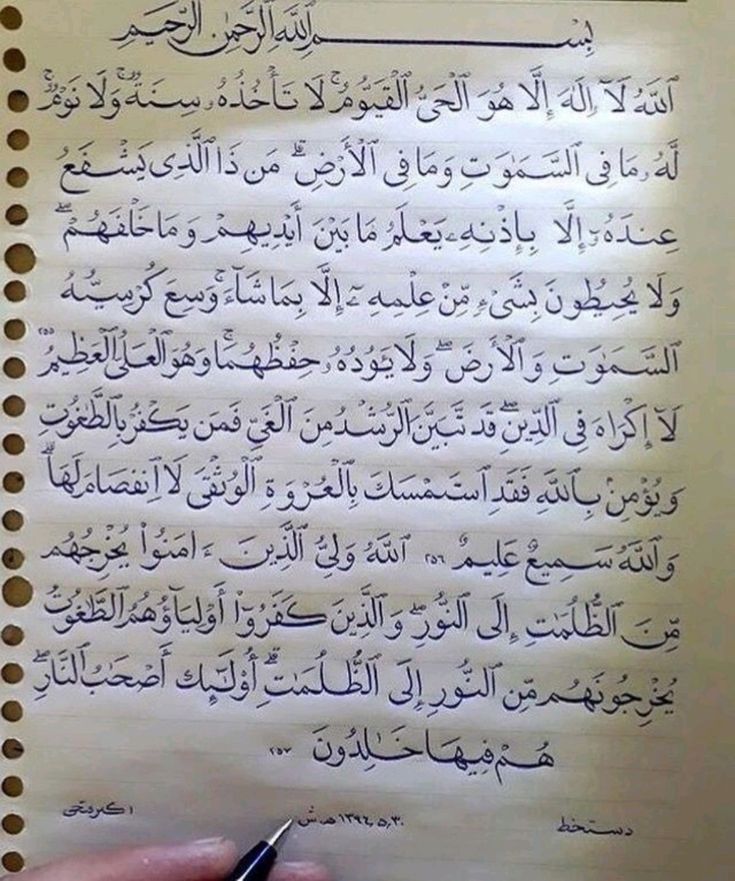 بِسْمِ ٱللَّهِ ٱلرَّحْمَٰنِ ٱلرَّحِيمِ
ٱللَّهُ لَآ إِلَٰهَ إِلَّا هُوَ ٱلْحَىُّ ٱلْقَيُّومُ ۚ لَا تَأْخُذُهُۥ سِنَةٌ وَلَا نَوْمٌ ۚ
لَّهُۥ مَا فِى ٱلسَّمَٰوَٰتِ وَمَا فِى ٱلْأَرْضِ ۗ مَن ذَا ٱلَّذِى يَشْفَعُ
عِندَهُۥٓ إِلَّا بِإِذْنِهِۦ ۚ يَعْلَمُ مَا بَيْنَ أَيْدِيهِمْ وَمَا خَلْفَهُمْ ۖ
وَلَا يُحِيطُونَ بِشَىْءٍ مِّنْ عِلْمِهِۦٓ إِلَّا بِمَا شَآءَ ۚ وَسِعَ كُرْسِيُّهُ
ٱلسَّمَٰوَٰتِ وَٱلْأَرْضَ ۖ وَلَا يَـُٔودُهُۥ حِفْظُهُمَا ۚ وَهُوَ ٱلْعَلِىُّ ٱلْعَظِيمُ ٢٥٥
لَآ إِكْرَاهَ فِى ٱلدِّينِ ۖ قَد تَّبَيَّنَ ٱلرُّشْدُ مِنَ ٱلْغَىِّ ۚ فَمَن يَكْفُرْ بِٱلطَّٰغُوتِ
وَيُؤْمِنۢ بِٱللَّهِ فَقَدِ ٱسْتَمْسَكَ بِٱلْعُرْوَةِ ٱلْوُثْقَىٰ لَا ٱنفِصَامَ لَهَا ۗ
وَٱللَّهُ سَمِيعٌ عَلِيمٌ ٢٥٦ ٱللَّهُ وَلِىُّ ٱلَّذِينَ ءَامَنُوا۟ يُخْرِجُهُم
مِّنَ ٱلظُّلُمَٰتِ إِلَى ٱلنُّورِ ۖ وَٱلَّذِينَ كَفَرُوٓا۟ أَوْلِيَآؤُهُمُ ٱلطَّٰغُوتُ
يُخْرِجُونَهُم مِّنَ ٱلنُّورِ إِلَى ٱلظُّلُمَٰتِ ۗ أُو۟لَٰٓئِكَ أَصْحَٰبُ ٱلنَّارِ ۖ
هُمْ فِيهَا خَٰلِدُونَ ٢٥٧
دستخط ۱۳۹۶٫۵٫۳۰ هـ ش